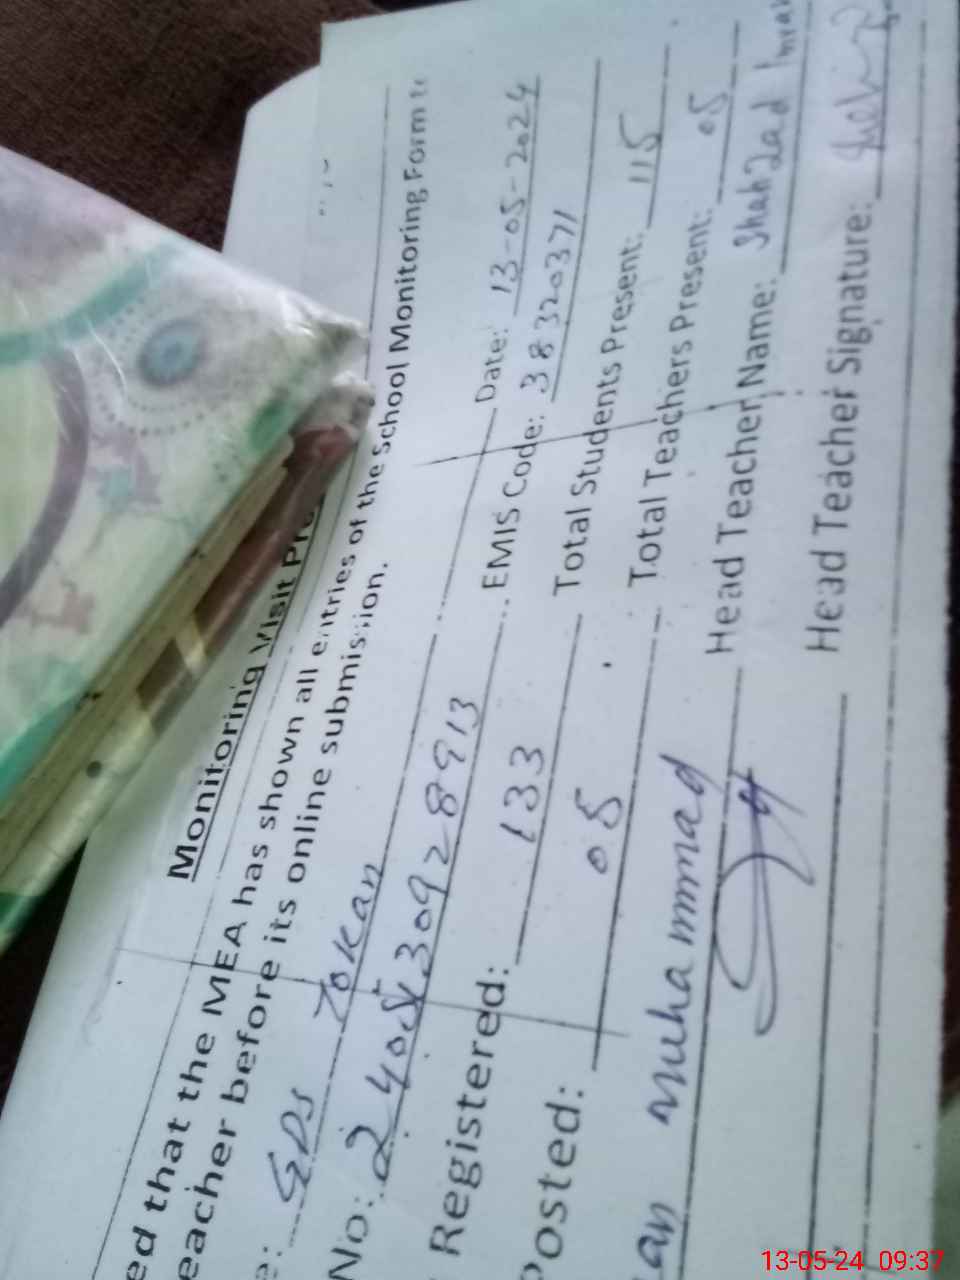 Monitoring Visit
ed that the MEA has shown all entries of the School Monitoring Form
eacher before its online submission.
e: GPS Tokan Date: 13-05-2024
No: EMIS Code: 38320371
Registered: 133 Total Students Present: 115
Posted: 05 Total Teachers Present: 05
an muhammad Head Teacher Name: Shahzad Imran
Head Teacher Signature:
13-05-24 09:37